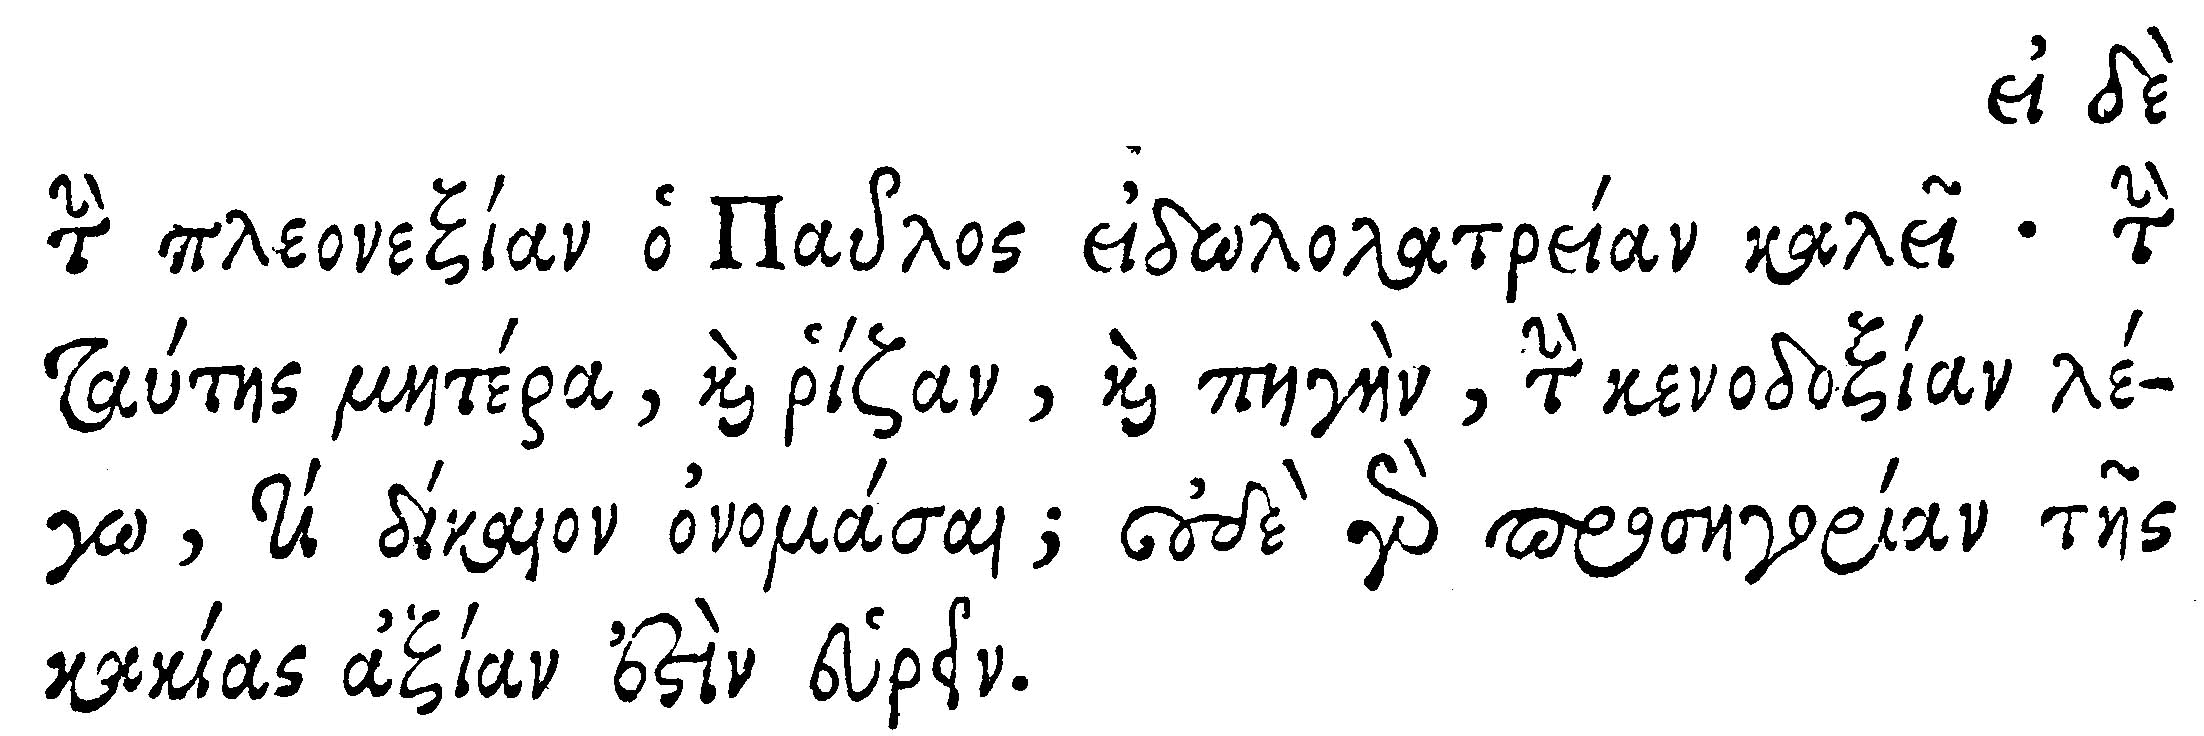 εἰ δὲ
τὴν πλεονεξίαν ὁ Παῦλος εἰδωλολατρείαν καλεῖ · τὴν
ταύτης μητέρα, καὶ ῥίζαν, καὶ πηγὴν, τὴν κενοδοξίαν λέ-
γω, τί δίκαιον ὀνομάσαι; οὐδὲ γὰρ προσηγορίαν τῆς
κακίας ἀξίαν ἐστὶν εὑρεῖν.